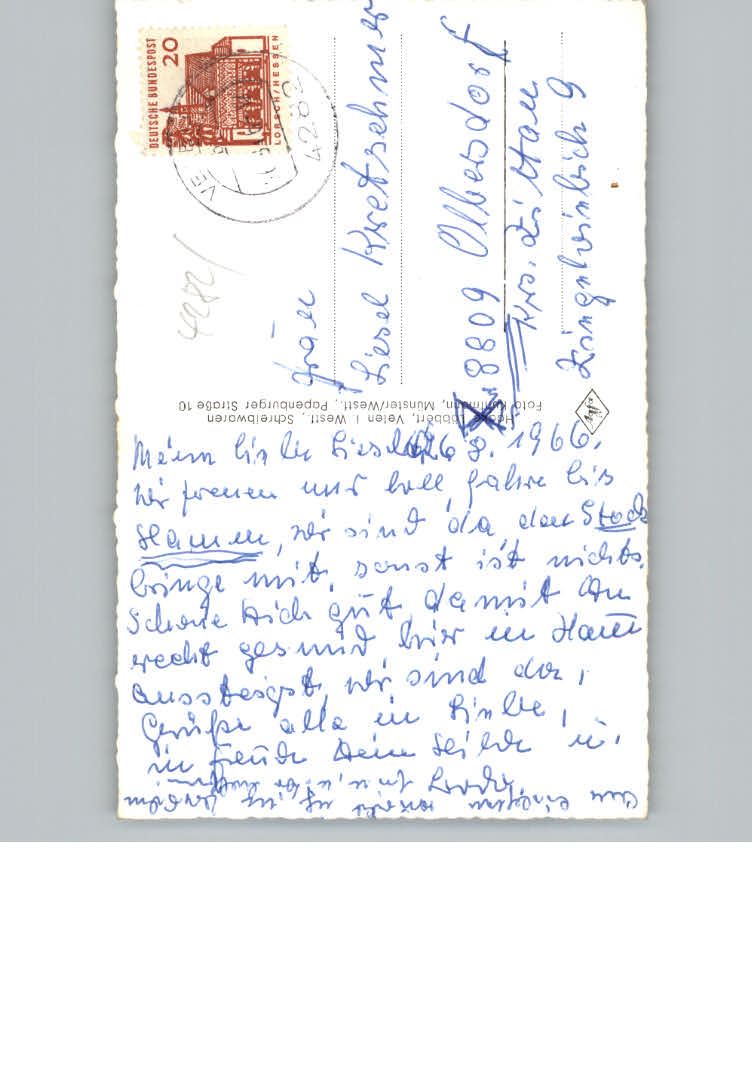 DEUTSCHE BUNDESPOST
20
LORSCH/HESSEN
4282
4282/
Frau
Liesel Kretschmer
8809 Olbersdorf
Krs. Zittau
Zingelwinkel 9
Lübbert, Velen i. Westf., Schreibwaren
Foto Kuhlmann, Münster/Westf., Papenburger Straße 10
Agfa
Mein liebe Liesel, 8. 1966.
Wir freuen uns voll, fahre bis
Hamm, wir sind da, den Stock
bringe mit, sonst ist nichts.
Schone Dich gut damit Du
recht gesund hier in Hamm
aussteigst, wir sind da,
Grüße alle in Liebe,
in Freude Deine Hilde u.